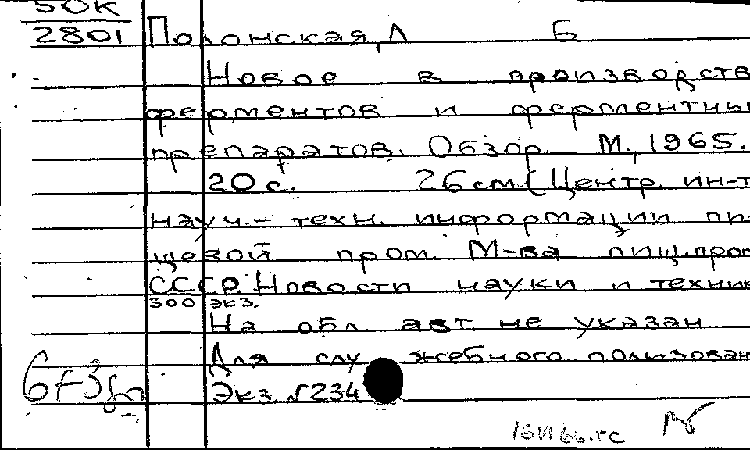 50К
2801 Полонская, Л Б
Новое в производств
ферментов и ферментны
препаратов. Обзор. М., 1965.
20 с. 26 см. (Центр. ин-т
науч.- техн. информации пи
щевой пром. М-ва пищ.про
СССР. Новости науки и техни
300 экз.
На обл. авт. не указан
Для служебного пользован
Экз. №234